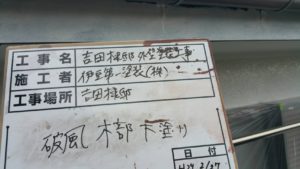 工事名 吉田様邸 外壁塗装工事
施工者 伊豆第一塗装(株)
工事場所 吉田様邸
破風 木部 下塗り
日付